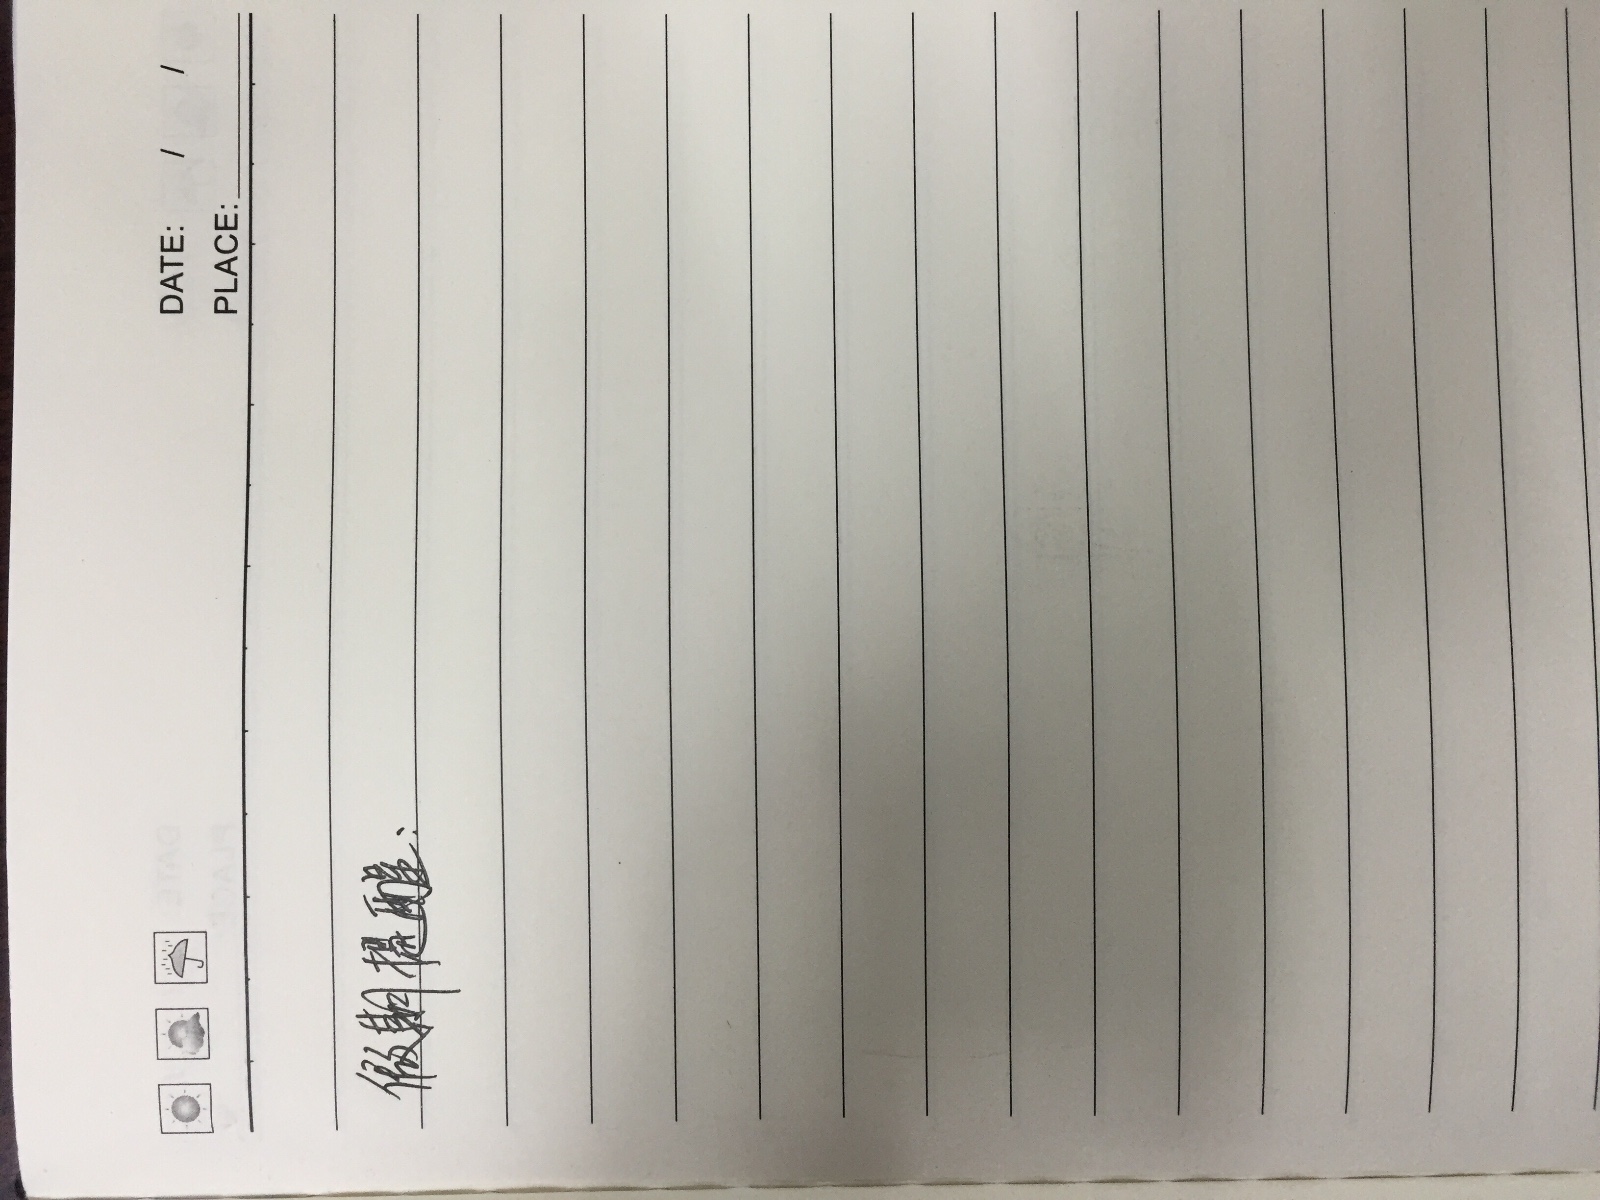 DATE: / /
PLACE:
假期提醒: